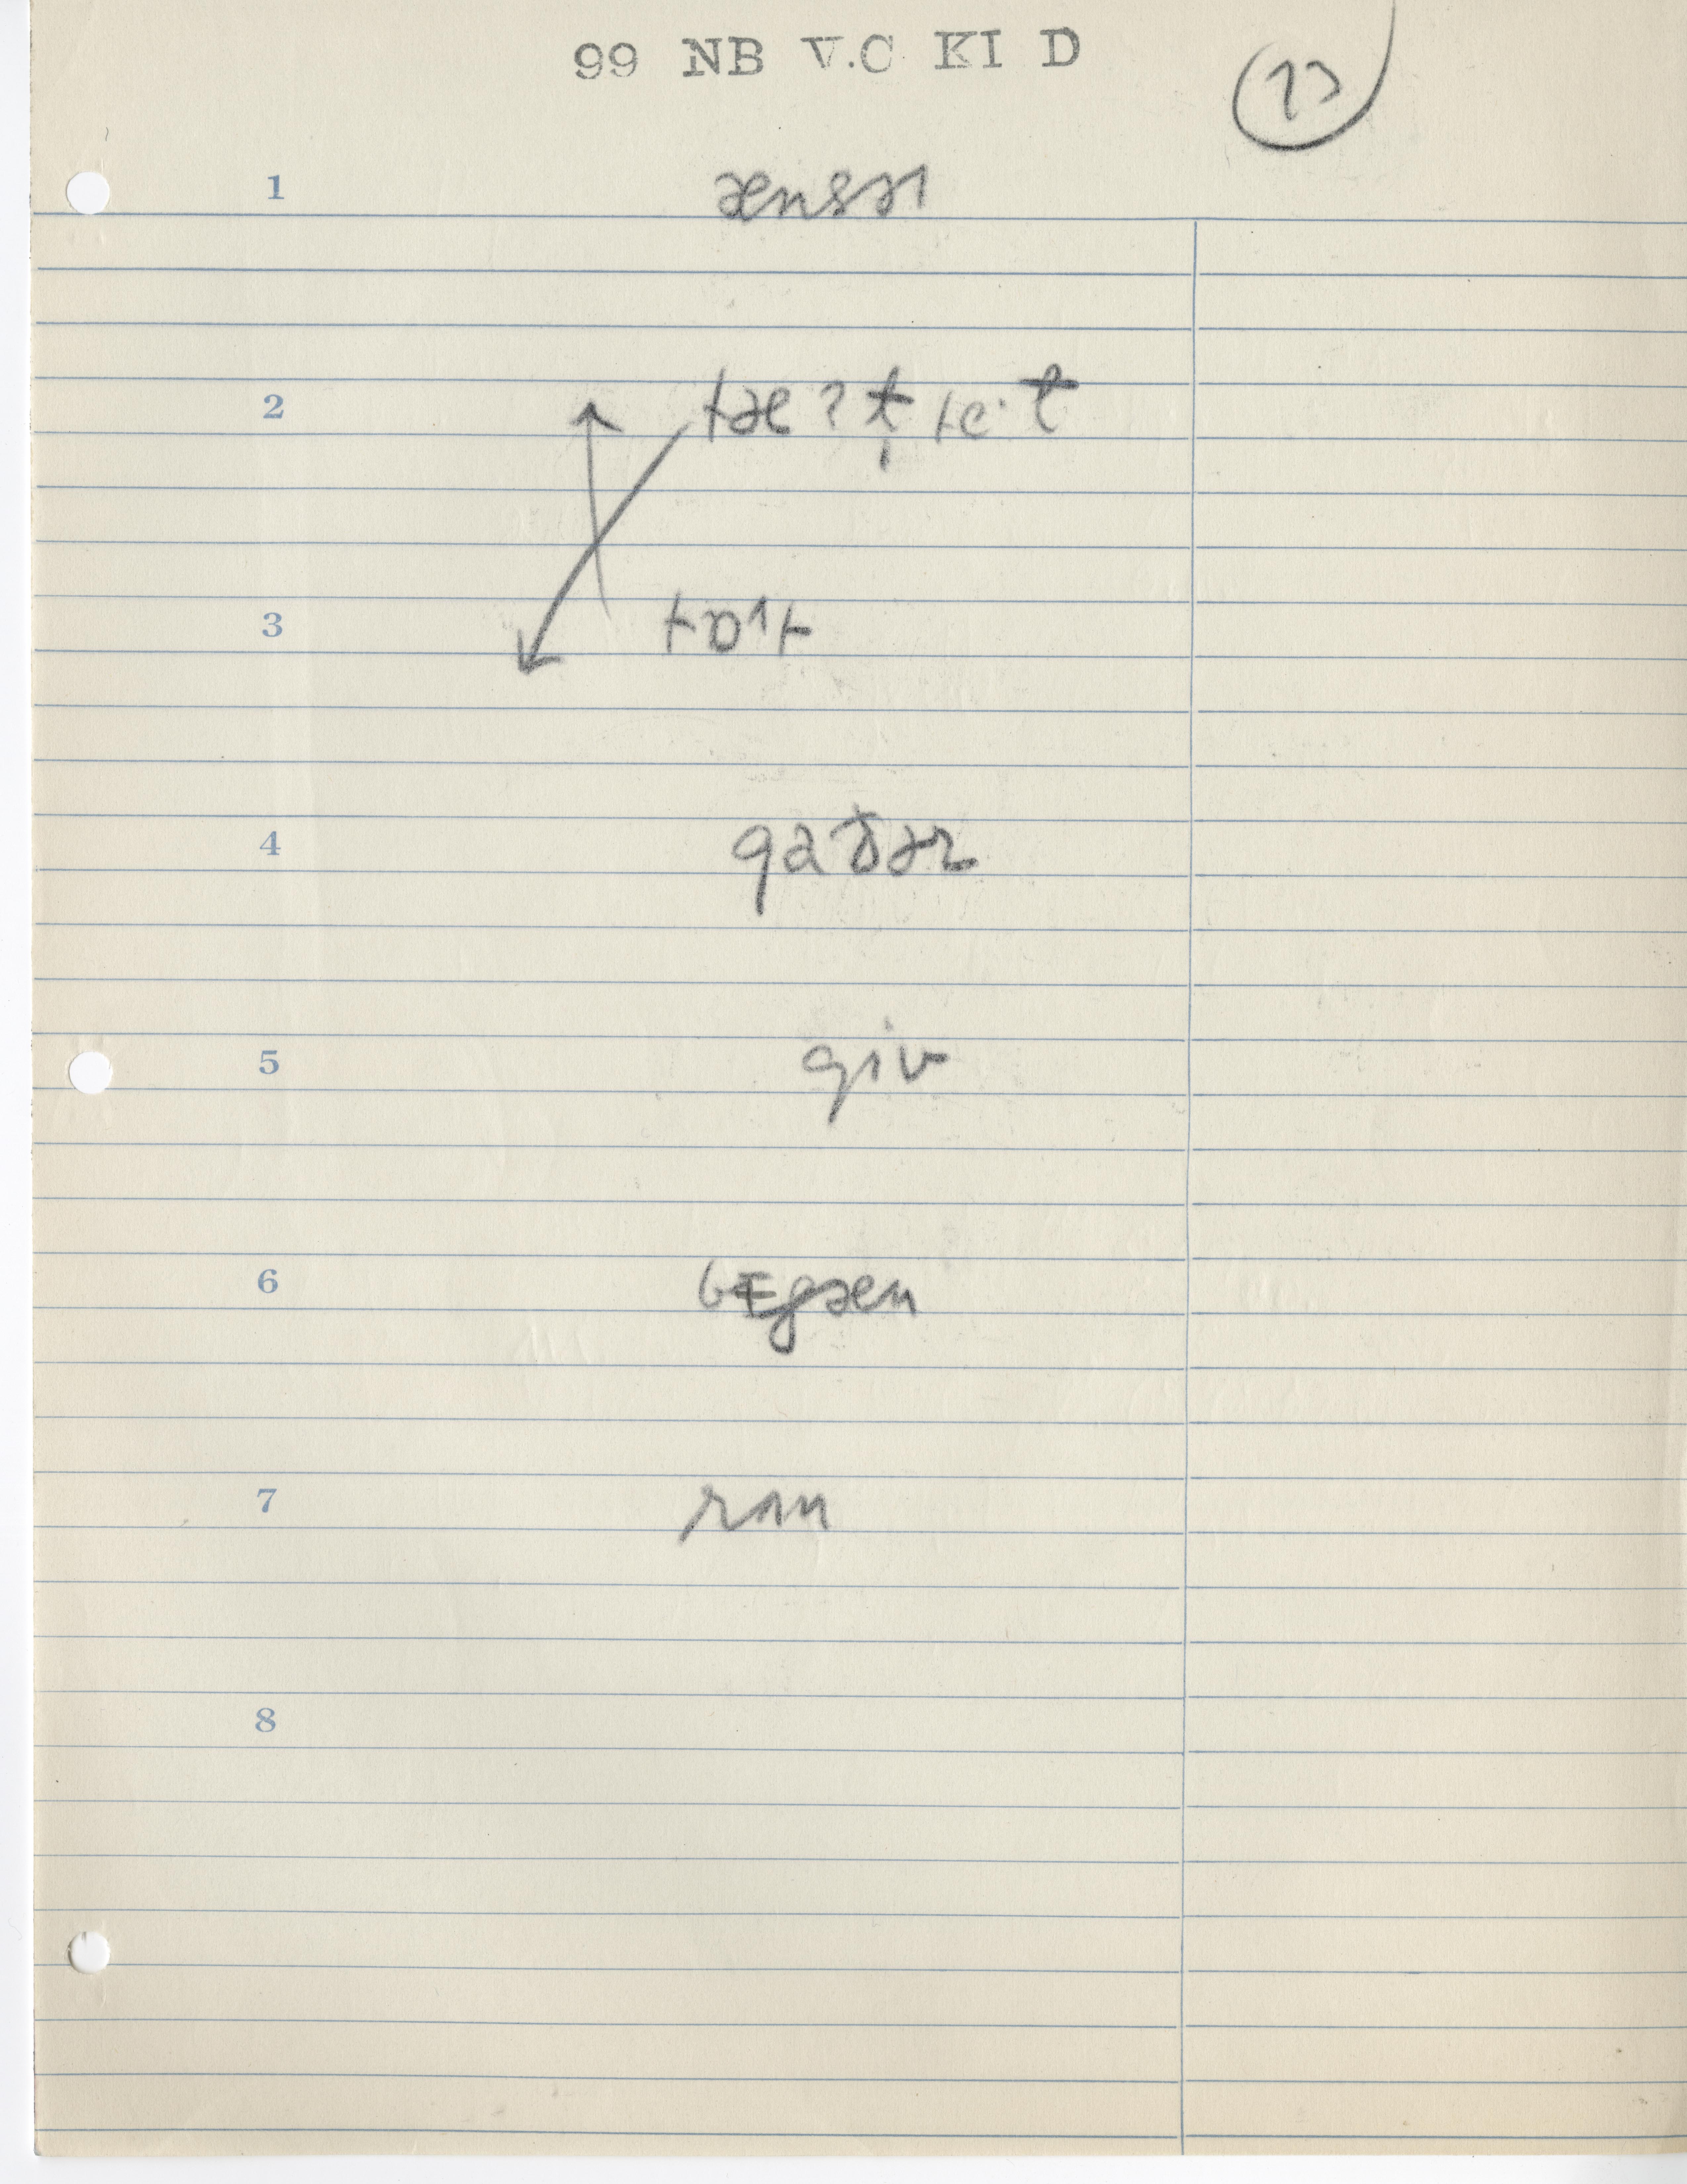 99 NB V.C KI D
13
1 ænsəɪ
2 tæʔt̬ te·t
3 tɒɪt
4 gaðər
5 giv
6 bɛgæn
7 rʌn
8